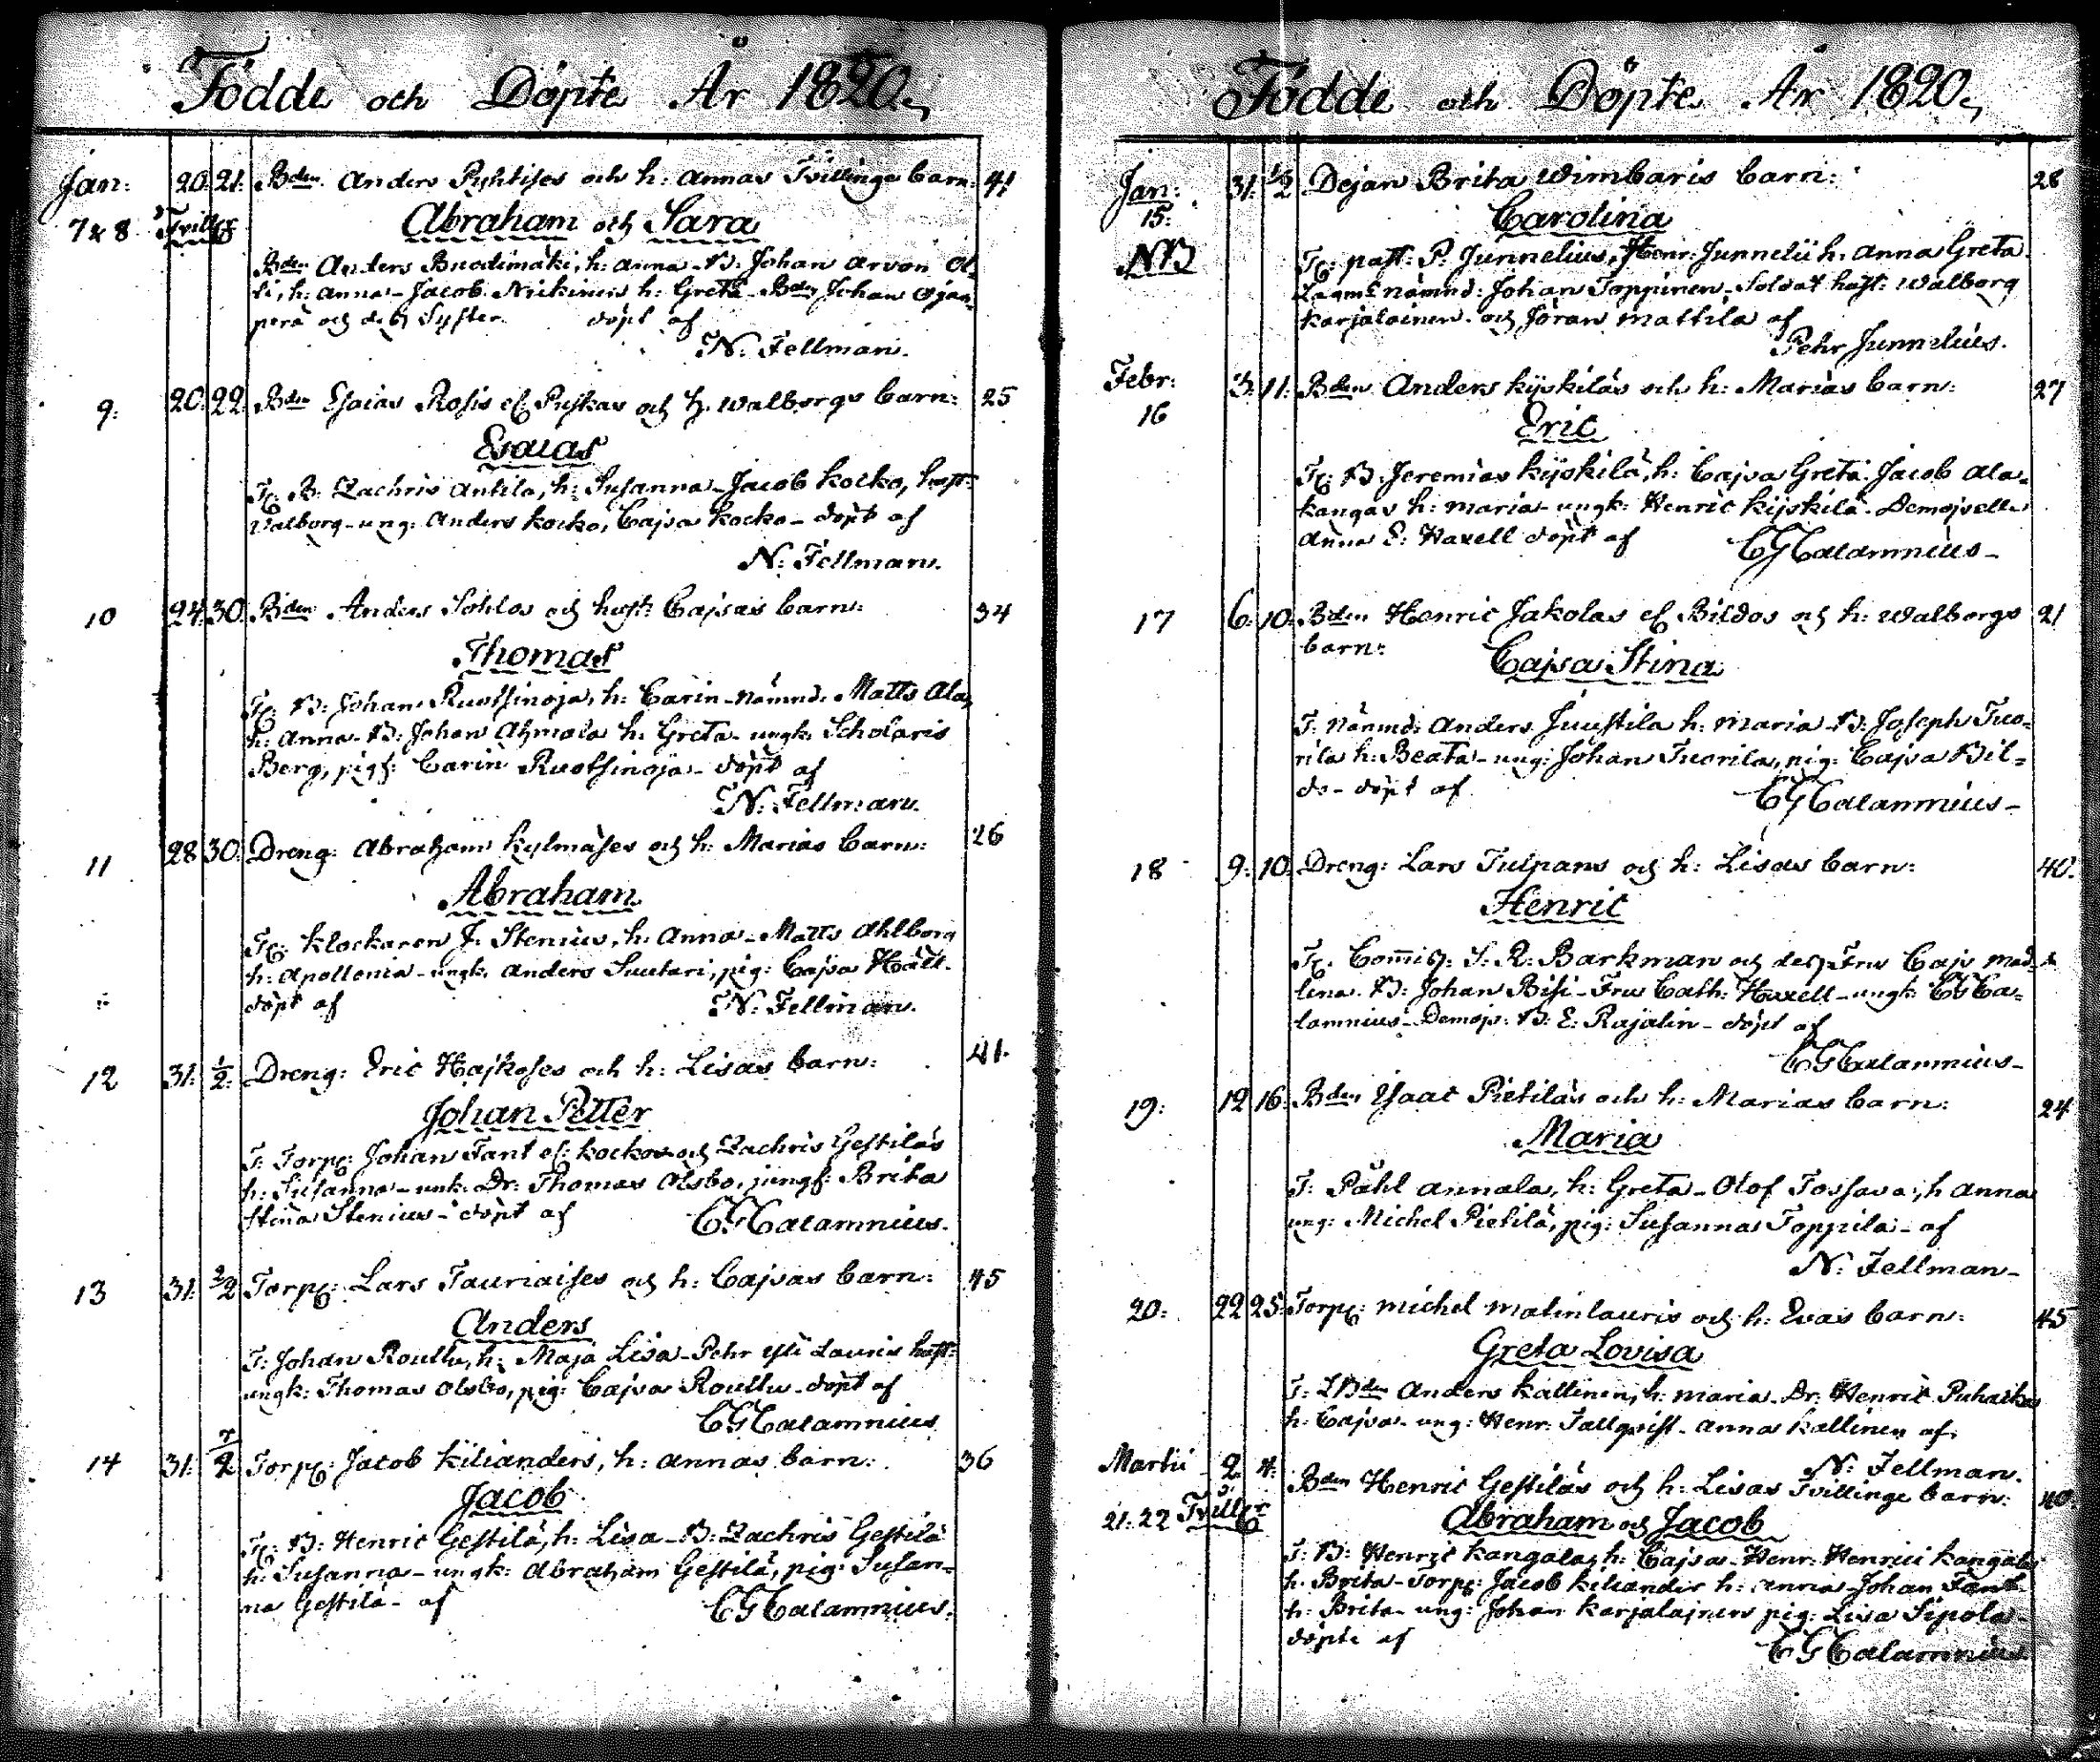 Födde och Döpte År 1820.
Jan: 20. 21. Bden Anders Pyhtises och h: Annas Tvillinge barn: 41
7 & 8 Tvill:r Abraham och Sara
Bden Anders h: Anna - B: Johan Arvon Ol-
li, h: Anna - Jacob Nickinen h: Greta - Bden Johan Ojan-
perä och des Syster döpt af
N: Fellman.
9. 20. 22. Bden Esaias Rosis el. Puskas och h. Walborgs barn: 25
Esaias
F: B: Zachris Antila, h: Susanna - Jacob Kocko, hust:
Valborg - ung: Anders Kocko, Cajsa Kocko - döpt af
N: Fellman.
10 24. 30. Bden Anders Sohlos och hust: Cajsas barn: 34
Thomas
F: B: Johan Ruotsinoja, h: Carin - nämnd: Matts Ala,
h: Anna - B: Johan Ahmala h: Greta - ungk: Scholaris
Berg, pigf: Carin Ruotsinoja - döpt af
N: Fellman.
11 28 30. Dreng: Abraham Kylmäses och h: Marias barn: 26
Abraham
F: Klockaren J. Stenius, h: Anna - Matts Ahlborg
h: Apollonia - ungk: Anders Suutari, pig: Cajsa Häll.
döpt af N: Fellman.
12 31: 1/2: Dreng: Eric Hajkoses och h: Lisas barn: 41.
Johan Petter
F: Torp: Johan Fant el: Kockos och Zachris Gestiläs
h: Susanna - unk: Dr: Thomas Olsbo, jungf: Brita
Stina Stenius - döpt af C G Calamnius.
13 31: 2/2 Torp: Lars Tauriaises och h: Cajsas barn: 45
Anders
F: Johan Roullu, h: Maja Lisa - Pehr Yli Lauris hust:
ungk: Thomas Olsbo, pig: Cajsa Roullu - döpt af
C G Calamnius
14 31: 7/2 Torp: Jacob Kilianders, h: Annas barn: 36
Jacob
F: B: Henric Gestilä, h: Lisa - B: Zachris Gestilä
h: Susanna - ungk: Abraham Gestilä, pig: Susan-
na Gestilä - af C G Calamnius.
Födde och Döpte År 1820.
Jan: 31: 1/2 Dejan Brita Wimbaris barn: 28
15: Carolina
NB F: past: P. Junnelius, Henr: Junnelii h: Anna Greta
nämnd: Johan Toppinen - Soldat hust: Walborg
Karjalainen och Jöran Mattila af
Pehr Junnelius.
Febr: 3. 11. Bden Anders Kyskiläs och h: Marias barn: 27
16 Eric
F: B: Jeremias Kyskilä, h: Cajsa Greta. Jacob Ala-
kangas h: Maria - ungk: Henric Kyskilä - Demojselle
Anna E: Haxell döpt af C G Calamnius -
17 6. 10. Bden Henric Jakolas el Bildos och h: Walborgs 21
barn: Cajsa Stina
F: Nämnd: Anders Juustila h: Maria - B: Joseph Tuo-
rila h: Beata - ung: Johan Tuorila, pig: Cajsa Bil-
do - döpt af C G Calamnius -
18 9: 10. Dreng: Lars Tulpans och h: Lisas barn: 40.
Henric
F: Com̄is: S: R: Barkman och des Fru Cajs Mad-
lena. B: Johan Bisi - Fru Cath: Haxell - ungk: C G Ca-
lamnius - Demojs: B: E: Rajalin - döpt af
C G Calamnius -
19: 12 16. Bden Isaac Pietiläs och h: Marias barn: 24
Maria
F: Påhl Annala, h: Greta - Olof Tossava, h Anna
ung: Michel Pietilä, pig: Susanna Toppila - af
N: Fellman -
20: 22 25. Torp: Michel Matinlauris och h: Evas barn: 45
Greta Lovisa
F: Bden Anders Kallinen, h: Maria - Dr: Henric Puhacka
h: Cajsa - ung: Henr: Tallqvist - Anna Kallinen af.
N: Fellman.
Martii 2 4: Bden Henric Gestiläs och h: Lisas Tvillinge barn: 40.
21: 22 Tvill:r Abraham och Jacob
F: B: Henric Kangala, h: Cajsa - Henr: Henrici Kangala
h. Brita - Torp: Jacob Kiliander h: Anna - Johan Fant
h: Brita - ung: Johan Karjalainen pig: Lisa Sipola -
döpte af C G Calamnius